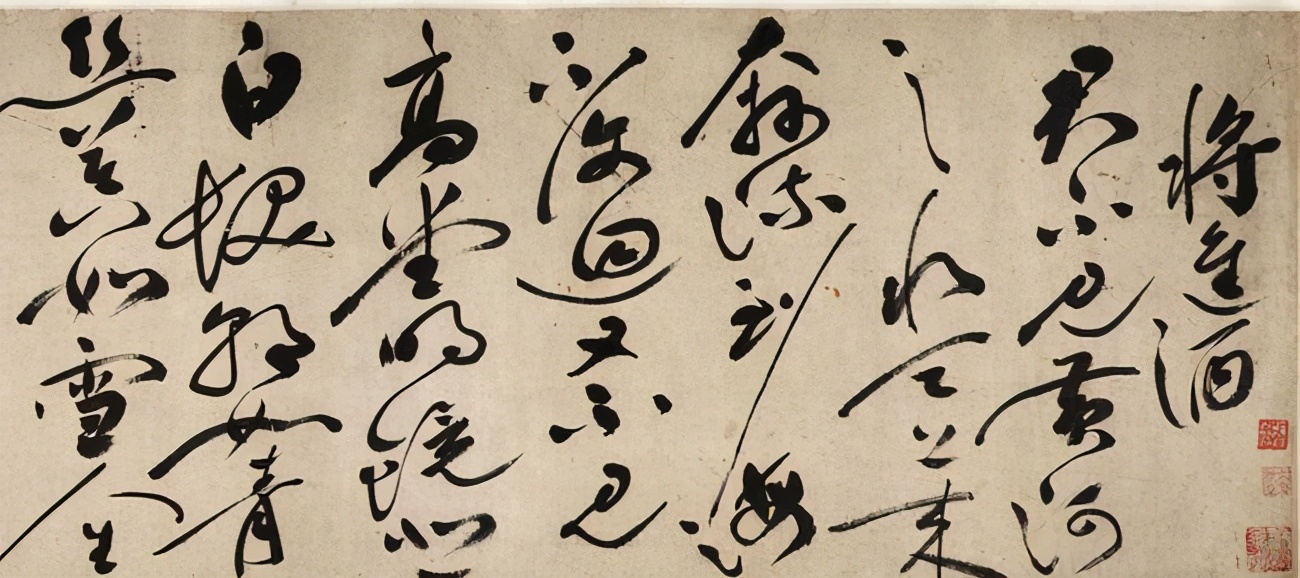 將進酒
君不見黃河
之水天上来
奔流到海
不復回又不見
高堂明鏡悲
白髮朝如青
絲暮如雪人生